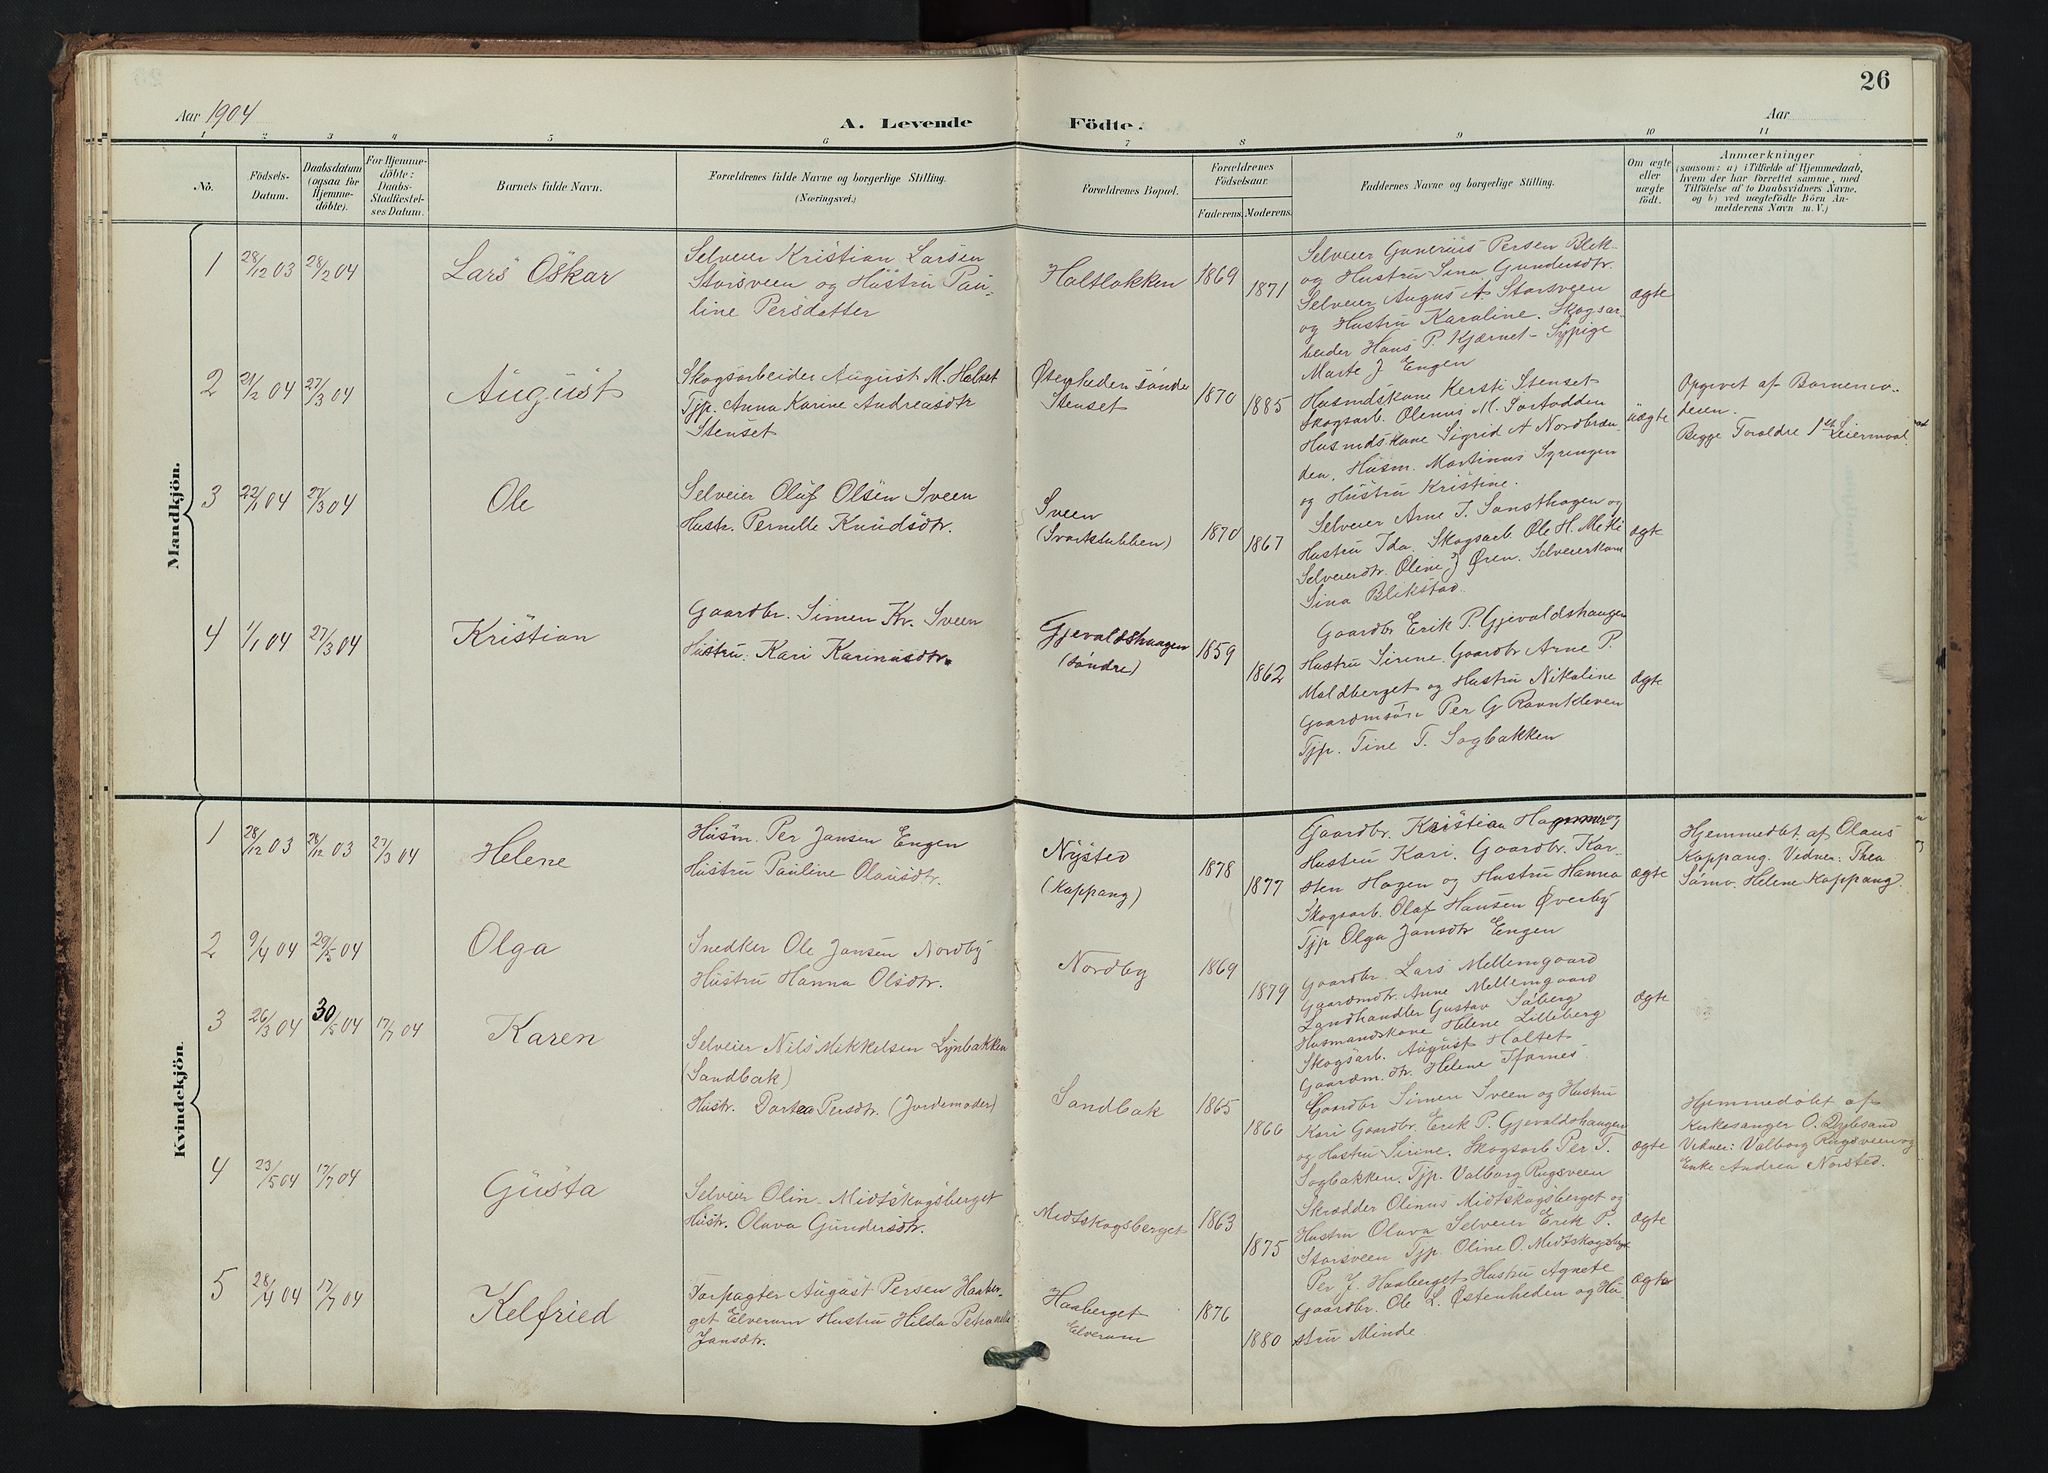 26
Aar 1904
A. Levende
Födte.
Aar
1 2 3 4 5 6 7 8 9 10 11
No.
Födsels-
Datum.
Daabsdatum
(ogsaa for
Hjemme-
döbte).
For Hjemme-
döbte:
Daabs-
Stadfæstel-
ses Datum.
Barnets fulde Navn.
Forældrenes fulde Navne og borgerlige Stilling.
(Næringsvei.)
Forældrenes Bopæl.
Forældrenes
Födselsaar.
Faderens. Moderens.
Faddernes Navne og borgerlige Stilling.
Om ægte
eller
uægte
födt.
Anmærkninger
(saasom: a) i Tilfælde af Hjemmedaab,
hvem der har forrettet samme, med
Tilföielse af to Daabsvidners Navne.
og b) ved uægtefödte Börn An-
melderens Navn m. V.)
Mandkjön.
1 28/12 03 28/2 04
Lars Oskar
Selveier Kristian Larsen
Storsveen og Hustru Pau-
line Persdatter
Holtløkken
1869
1871
Selveier Gunerius Persen Blik-
og Hustru Sina Gundersdtr.
Selveier Augus A Storsveen
og Hustru Karoline. Skogsar-
beider Hans P. Kjærnet - Sypige
Marte J Engen
ægte
2 21/2 04 27/3 04
August
Skogsarbeider August M. Holset
Tjp. Anna Karine Andreasdtr
Stenset
Østenheden søndre
Stenset
1870
1885
Husmdskone Kersti Stenset
Skogsarb. Olinus M. Sortodden
Husmdskone Sigrid A Nordbræn-
den, Husm. Martinus Syrengen
og Hustru Kristine.
uægte
Opgivet af Barnemo-
deren.
Begge Forældre 1ste Leiermaal
3 22/1 04 27/3 04
Ole
Selveier Oluf Olsen Sveen
Hustr. Pernille Knudsdtr.
Sveen
(Svartstubben)
1870
1867
Selveier Arne T. Tansthagen og
Hustru Ida. Skogsarb. Ole H. Moki
Selveierdtr. Oline J Øren. Selveierkone
Sina Blikstad.
ægte
4 1/1 04 27/3 04
Kristian
Gaardbr. Simen Kr. Sveen
Hustru: Kari Karinusdtr.
Gjevaldshaugen
(søndre)
1859
1862
Gaardbr Erik P. Gjevaldshaugen
Hustru Sirine. Gaardbr Arne P.
Moldberget og Hustru Nikoline
Gaardmsön Per G Ravnkleven
Tjp. Tine T. Sagbakken
ægte
Kvindekjön.
1 28/12 03 28/12 03 27/3 04
Helene
Husm. Per Jansen Engen
Hustru Pauline Olausdtr.
Nysted
(Koppang)
1878
1877
Gaardbr. Kristian og
Hustru Kari. Gaardbr. Kar-
sten Hagen og Hustru Hanna
Skogsarb. Olaf Hansen Øverby
Tjp Olga Jansdtr Engen
ægte
Hjemmedbt. af Olaus
Koppang. Vidner: Thea
Sømo. Helene Koppang.
2 9/4 04 29/5 04
Olga
Snedker Ole Jansen Nordby
Hustru Hanna Olsdtr.
Nordby
1869
1879
Gaardbr. Lars Mellemgaard
Gaardmdtr. Anne Mellemgaard
Landhandler Gustav Søberg
Husmandskone Helene Lilleberg
Skogsarb. August Holtet
Gaardm.dtr. Helene Tfarnes.
ægte
3 26/3 04 30/5 04 17/7 04
Karen
Selveier Nils Mikkelsen Lynbakken
(Sandbak)
Hustr. Dortea Persdtr. (Jordemoder)
Sandbak
1865
1866
Gaardbr Simen Sveen og Hustru
Kari Gaardbr. Erik P. Gjevaldshaugen
og Hustru Sirine. Skogsarb Per T.
Sagbakken. Tjp. Valborg Rugsveen
ægte
Hjemmedøbt af
Kirkesanger O. Dybsand
Vidner: Valborg Rugsveen og
Enke Andrea Norsted.
4 23/5 04 17/7 04
Gusta
Selveier Olin- Midtskogsberget
Hustr. Olava Gundersdtr.
Midtskogsberget
1863
1875
Skrædder Olinus Midtskogsberget og
Hustru Olava Selveier Erik P.
Storsveen Tjp. Oline O. Midtskogsberget
ægte
5 28/4 04 17/7 04
Kelfried
Forpagter August Persen Haaber-
get Elverum Hustru Hilda Petronelle
Jansdtr.
Haaberget
Elverum
1876
1880
Per J. Haaberget Hustru Agnete
Gaardbr. Ole L. Østenheden og Hu-
stru Minde
ægte